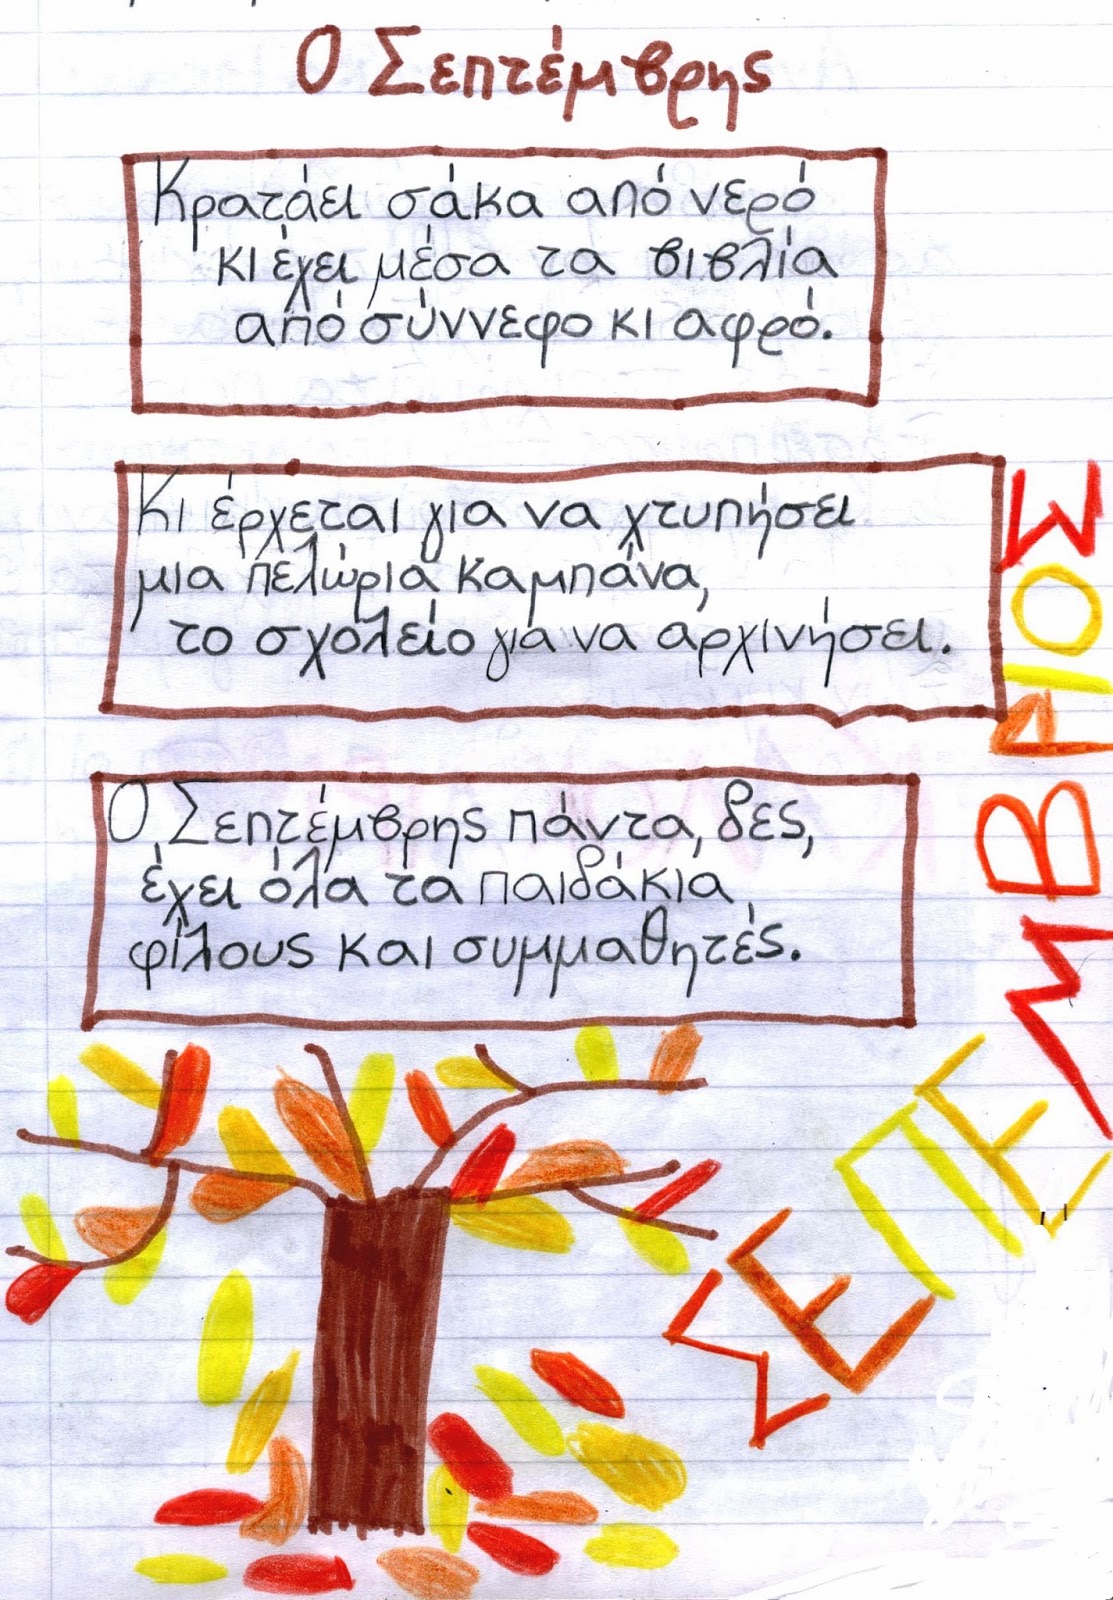 Ο Σεπτέμβρης
Κρατάει σάκα από νερό
κι έχει μέσα τα βιβλία
από σύννεφο κι αφρό.
Κι έρχεται για να χτυπήσει
μια πελώρια καμπάνα,
το σχολείο για να αρχινήσει.
Ο Σεπτέμβρης πάντα, δες,
έχει όλα τα παιδάκια,
φίλους και συμμαθητές.
ΣΕΠΕΜΒΡΙΟΣ